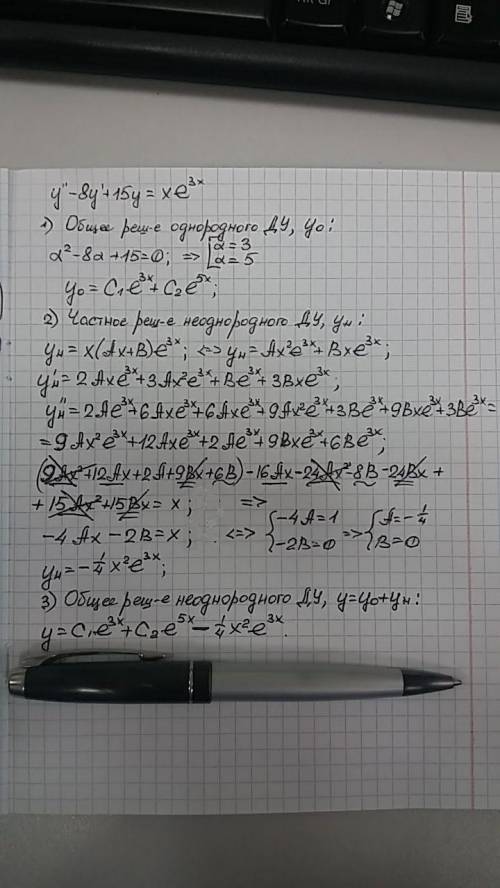 y'' - 8y' + 15y = xe^{3x}
1) Общее реш-е однородного ДУ, y₀:
α² - 8α + 15 = 0; => [α = 3 α = 5
y₀ = C₁e^{3x} + C₂e^{5x};
2) Частное реш-е неоднородного ДУ, yн:
yн = x(Ax+B)e^{3x}; <=> yн = Ax²e^{3x} + Bxe^{3x};
y'н = 2Axe^{3x} + 3Ax²e^{3x} + Be^{3x} + 3Bxe^{3x};
y''н = 2Ae^{3x} + 6Axe^{3x} + 6Axe^{3x} + 9Ax²e^{3x} + 3Be^{3x} + 9Bxe^{3x} + 3Be^{3x} =
= 9Ax²e^{3x} + 12Axe^{3x} + 2Ae^{3x} + 9Bxe^{3x} + 6Be^{3x};
(9Ax² + 12Ax + 2A + 9Bx + 6B) - 16Ax - 24Ax² - 8B - 24Bx +
+ 15Ax² + 15Bx = x; =>
-4Ax - 2B = x; <=> {-4A = 1 -2B = 0 => {A = -1/4 B = 0
yн = -1/4 x²e^{3x};
3) Общее реш-е неоднородного ДУ, y = y₀ + yн:
y = C₁e^{3x} + C₂e^{5x} - 1/4 x²e^{3x}.